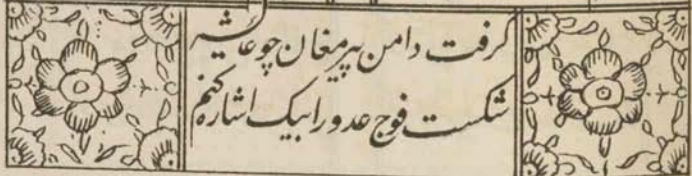 گرفت دامن پیر مغان چو عایشه
شکست فوج عدو را بیک اشاره کنم